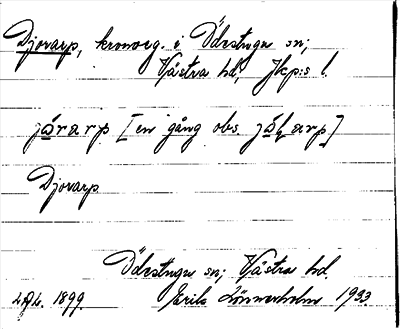 Djovarp, kronoeg. i Ödestugu sn;
Västra hd, Jkp:s l.
jårarp [en gång obs. jåɫarp]
Djovarp
Ödestugu sn; Västra hd.
1899. Erik Lönnerholm 1933